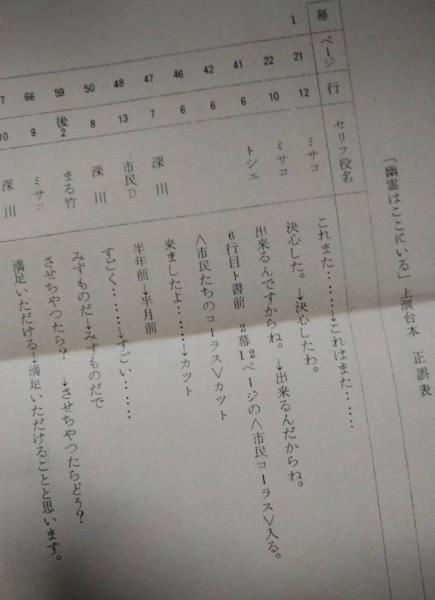 「幽霊はここにいる」上演台本 正誤表
幕 ページ 行 セリフ役名
1 21 12 ミサコ これまた……→これはまた……
22 10 ミサコ 決心した。→決心したわ。
41 6 トシエ 出来るんですからね。→出来るんだからね。
42 6 6行目ト書前 2幕12ページの〈市民コーラス〉入る。
46 6 〈市民たちのコーラス〉カット
47 7 深川 来ましたよ……→カット
48 13 市民D 半年前→半月前
50 8 深川 すごく……→すごい……
59 後2 まる竹 みずものだ→みずものだで
66 9 ミサコ させちやつたら?→させちやつたらどう?
7 10 深川 満足いただける→満足いただけることと思います。